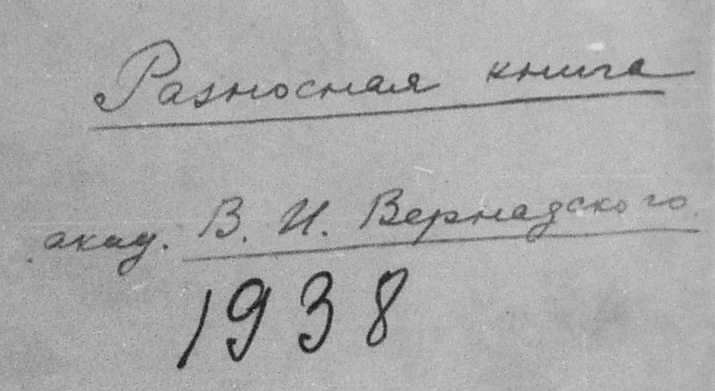 Разносная книга
акад. В. И. Вернадского.
1938